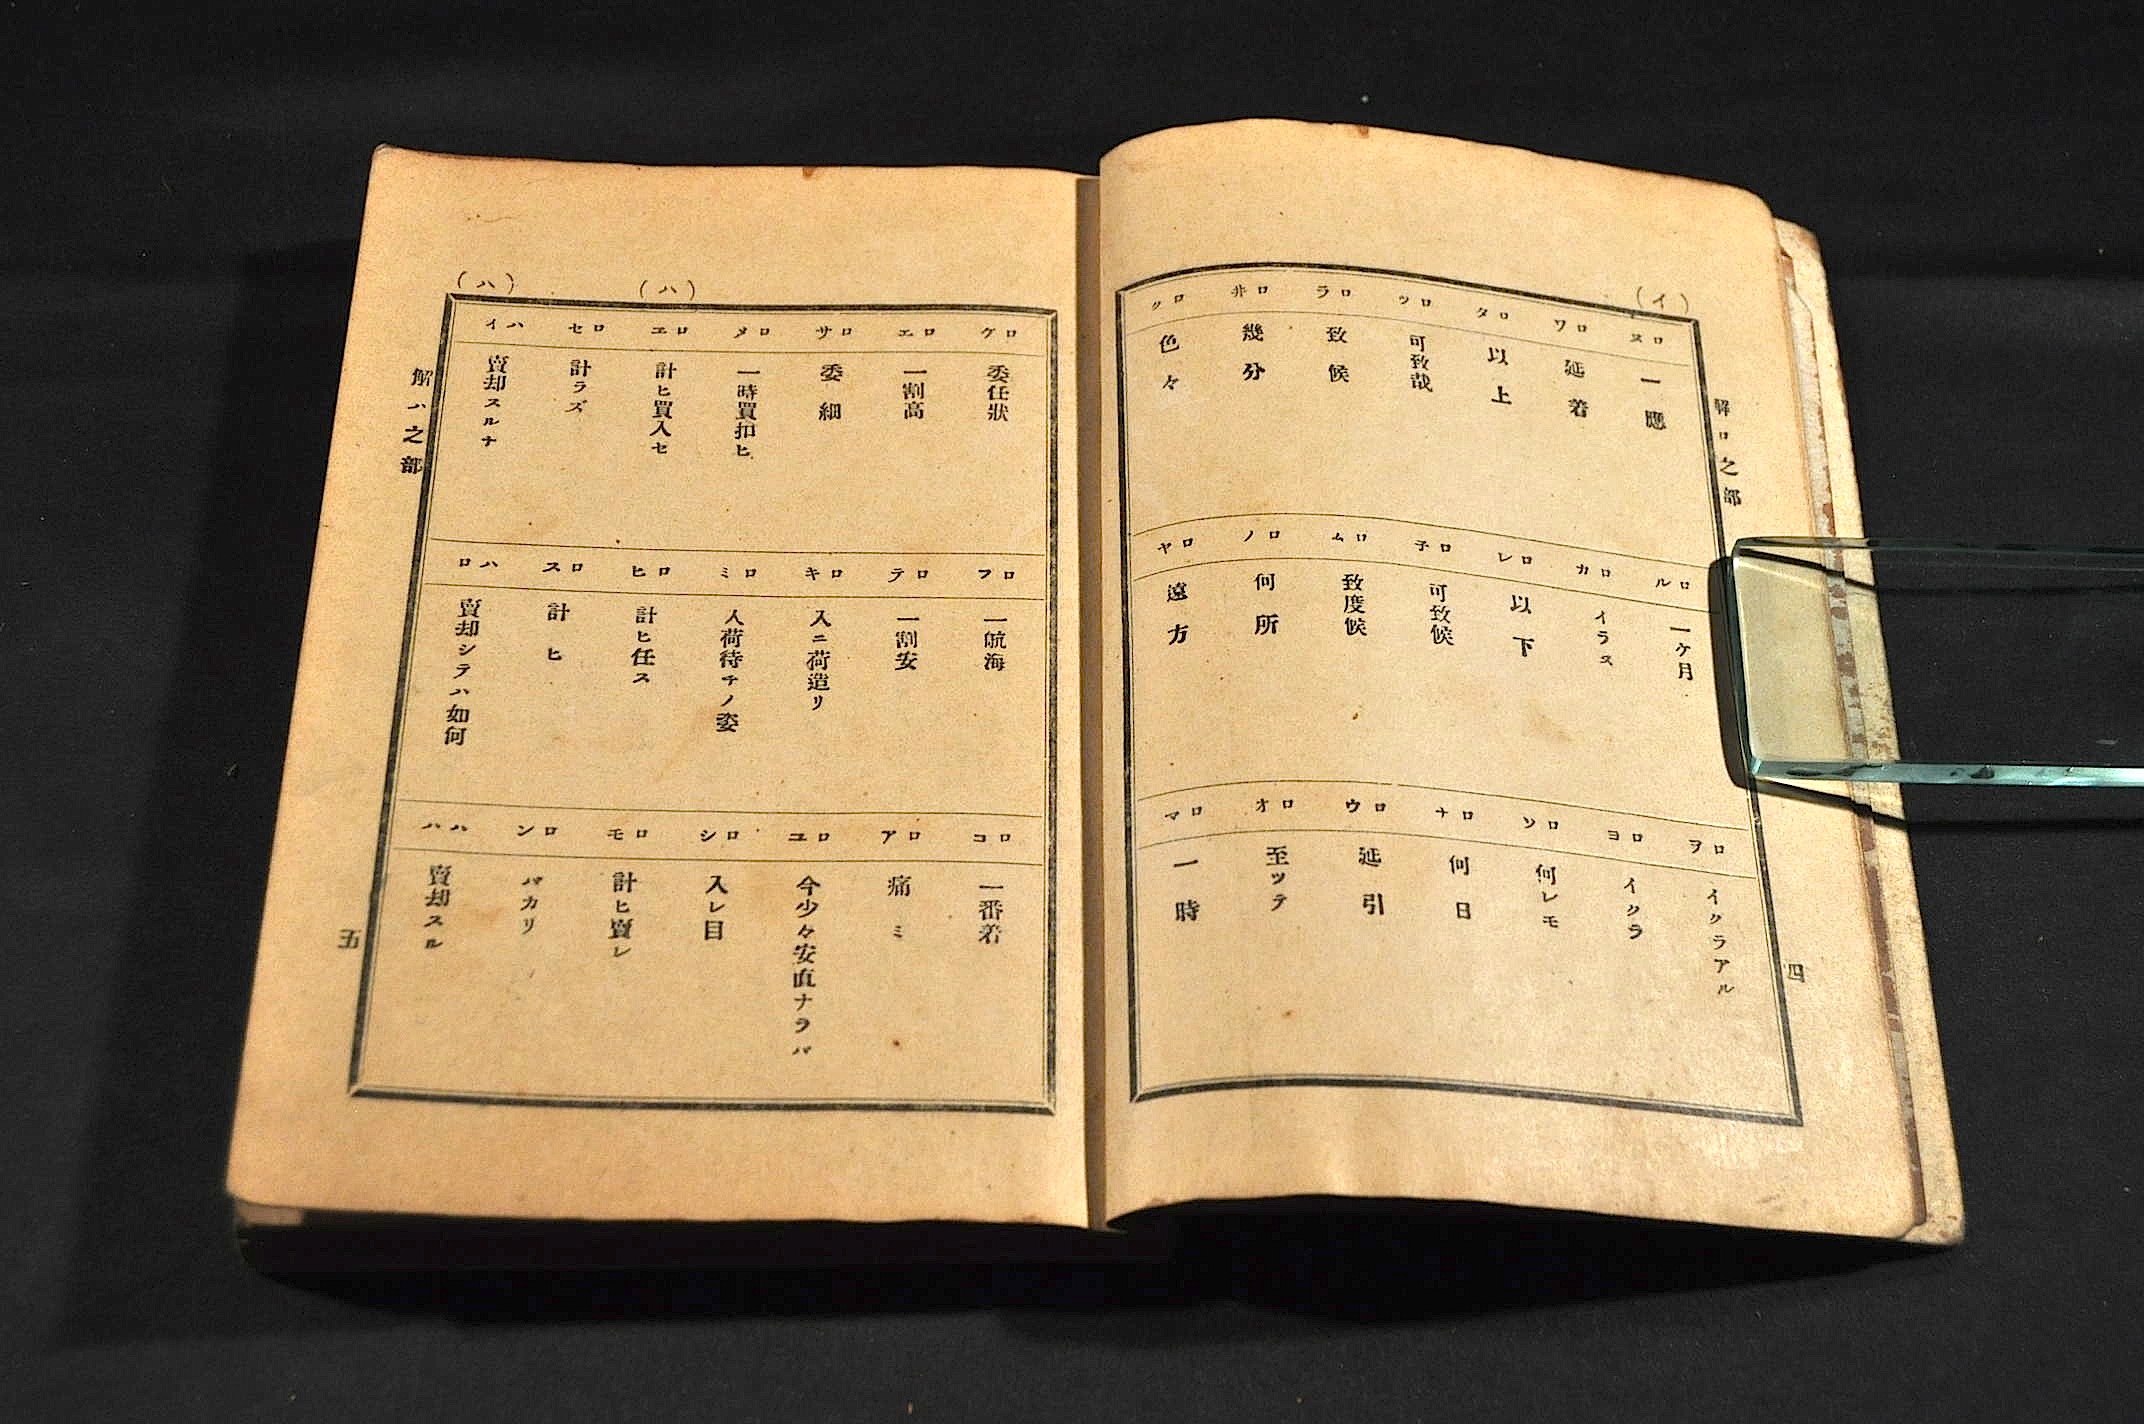 (イ)
解ロ之部
ロヌ
一應
ロル
一ケ月
ロヲ
イクラアル
ロワ
延着
ロカ
イラス
ロヨ
イクラ
ロタ
以上
ロレ
以下
ロソ
何レモ
ロツ
可致哉
ロ子
可致候
ロナ
何日
ロラ
致候
ロム
致度候
ロウ
延引
ロ井
幾分
ロノ
何所
ロオ
至ツテ
ロク
色々
ロヤ
遠方
ロマ
一時
四
ロケ
委任狀
ロフ
一航海
ロコ
一番着
ロエ
一割高
ロテ
一割安
ロア
痛ミ
ロサ
委細
ロキ
入ニ荷造リ
ロユ
今少々安直ナラバ
ロメ
一時買扣ヒ
ロミ
入荷待チノ姿
ロシ
入レ目
(ハ)
ロヱ
計ヒ買入セ
ロヒ
計ヒ任ス
ロモ
計ヒ賣レ
ロセ
計ラズ
ロス
計ヒ
ロン
バカリ
(ハ)
ハイ
賣却スルナ
ハロ
賣却シテハ如何
ハハ
賣却スル
解ハ之部
五